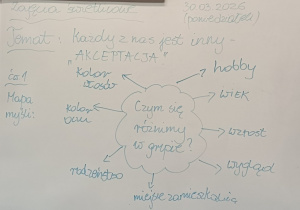 Zajęcia świetlicowe
30.03.2026
(poniedziałek)
Temat: Każdy z nas jest inny -
"AKCEPTACJA"
cz. 1
Mapa
myśli:
kolor
włosów
hobby
kolor
oczu
WIEK
Czym się
różnimy
w grupie?
wzrost
rodzeństwo
wygląd
miejsce zamieszkania